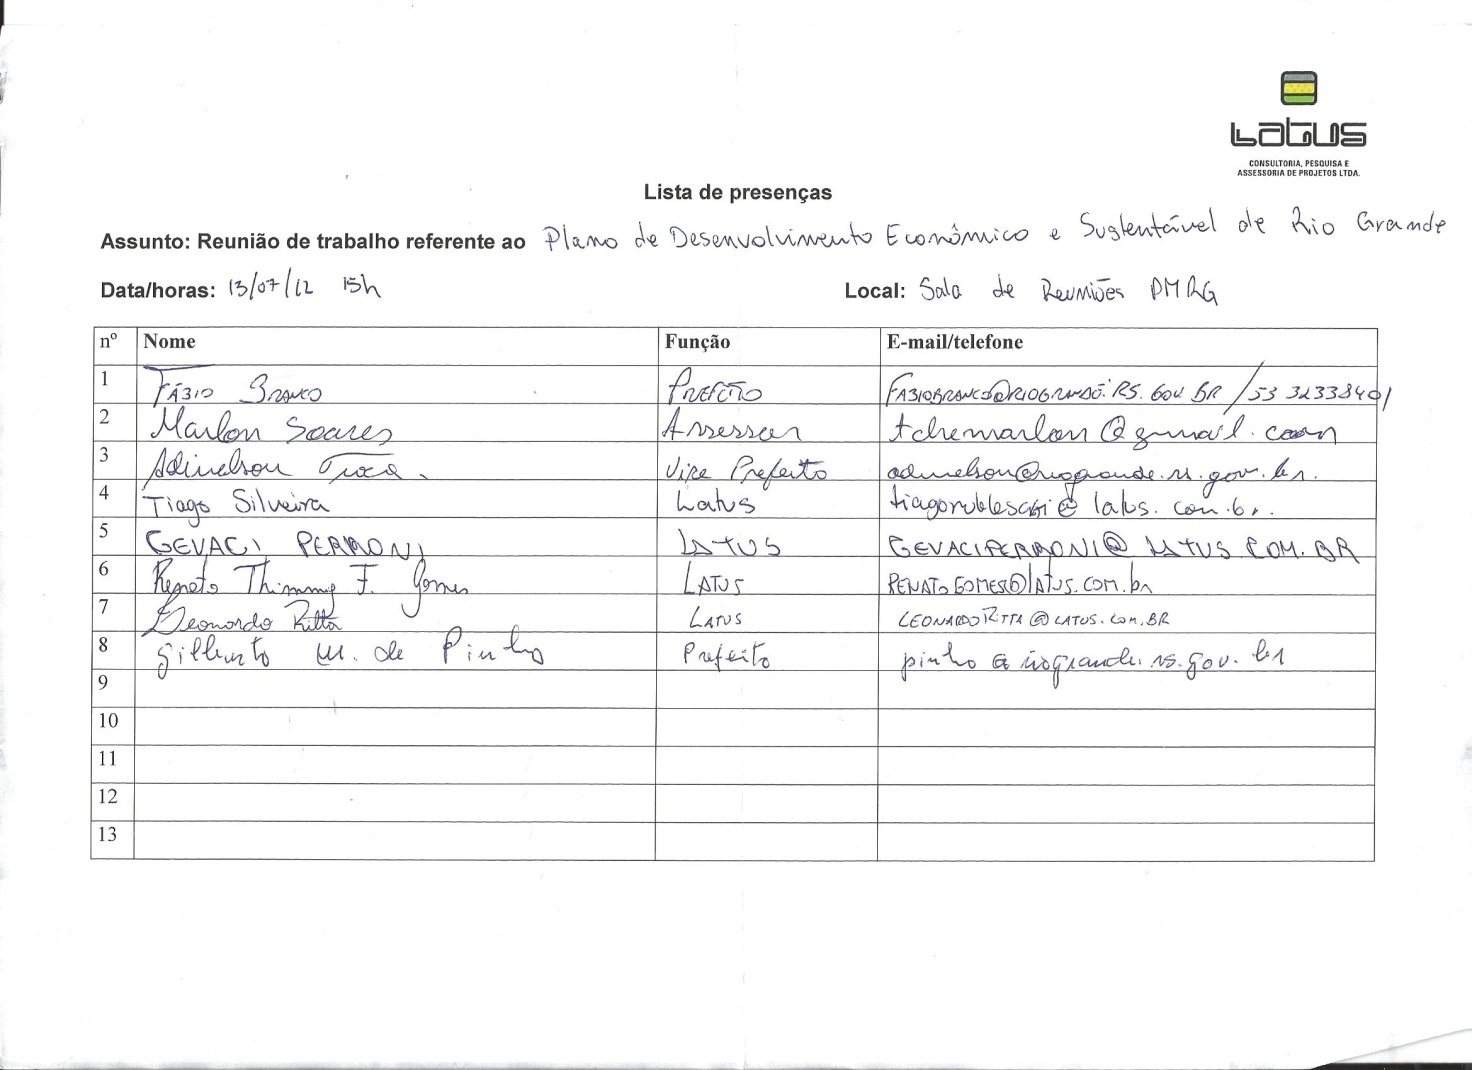 Latus
CONSULTORIA, PESQUISA E
ASSESSORIA DE PROJETOS LTDA.
Lista de presenças
Assunto: Reunião de trabalho referente ao Plano de Desenvolvimento Econômico e Sustentável de Rio Grande
Data/horas: 13/07/12 15h Local: Sala de Reuniões PMRG
nº Nome Função E-mail/telefone
1 FÁBIO BRANCO PREFEITO FABIOBRANCO@RIOGRANDE.RS.GOV.BR / 53 32338401
2 Marlon Soares Assessor tchemarlon@gmail.com
3 Adinelson Troca. Vice Prefeito adinelson@riogrande.rs.gov.br.
4 Tiago Silveira Latus @latus.com.br.
5 GEVACI PERRONI LATUS GEVACIPERRONI@LATUS.COM.BR
6 Renato Thimmy F. Gomes LATUS RENATOGOMES@LATUS.COM.br
7 Leonardo Ritta LATUS LEONARDORITTA@LATUS.COM.BR
8 Gilberto M. de Pinho Prefeito pinho@riogrande.rs.gov.br
9
10
11
12
13